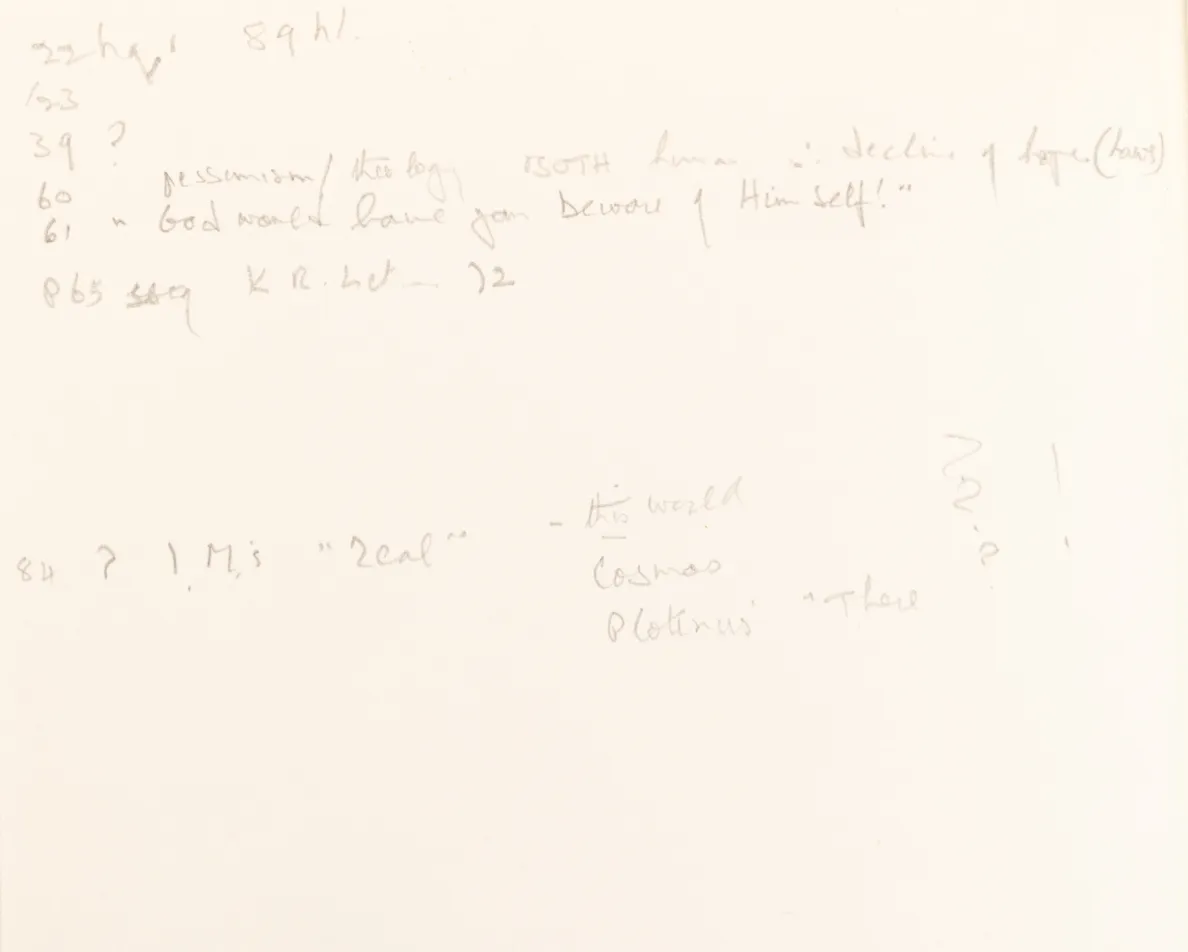 22 89
/23
39 ?
60 pessimism/theology BOTH human ∴ decline of hope. (hans)
61 " God would have you beware of Himself!"
p65 seq K R.
84 ? I.M.'s "real" - this world
Cosmos
Plotinus' "There
? !
? !